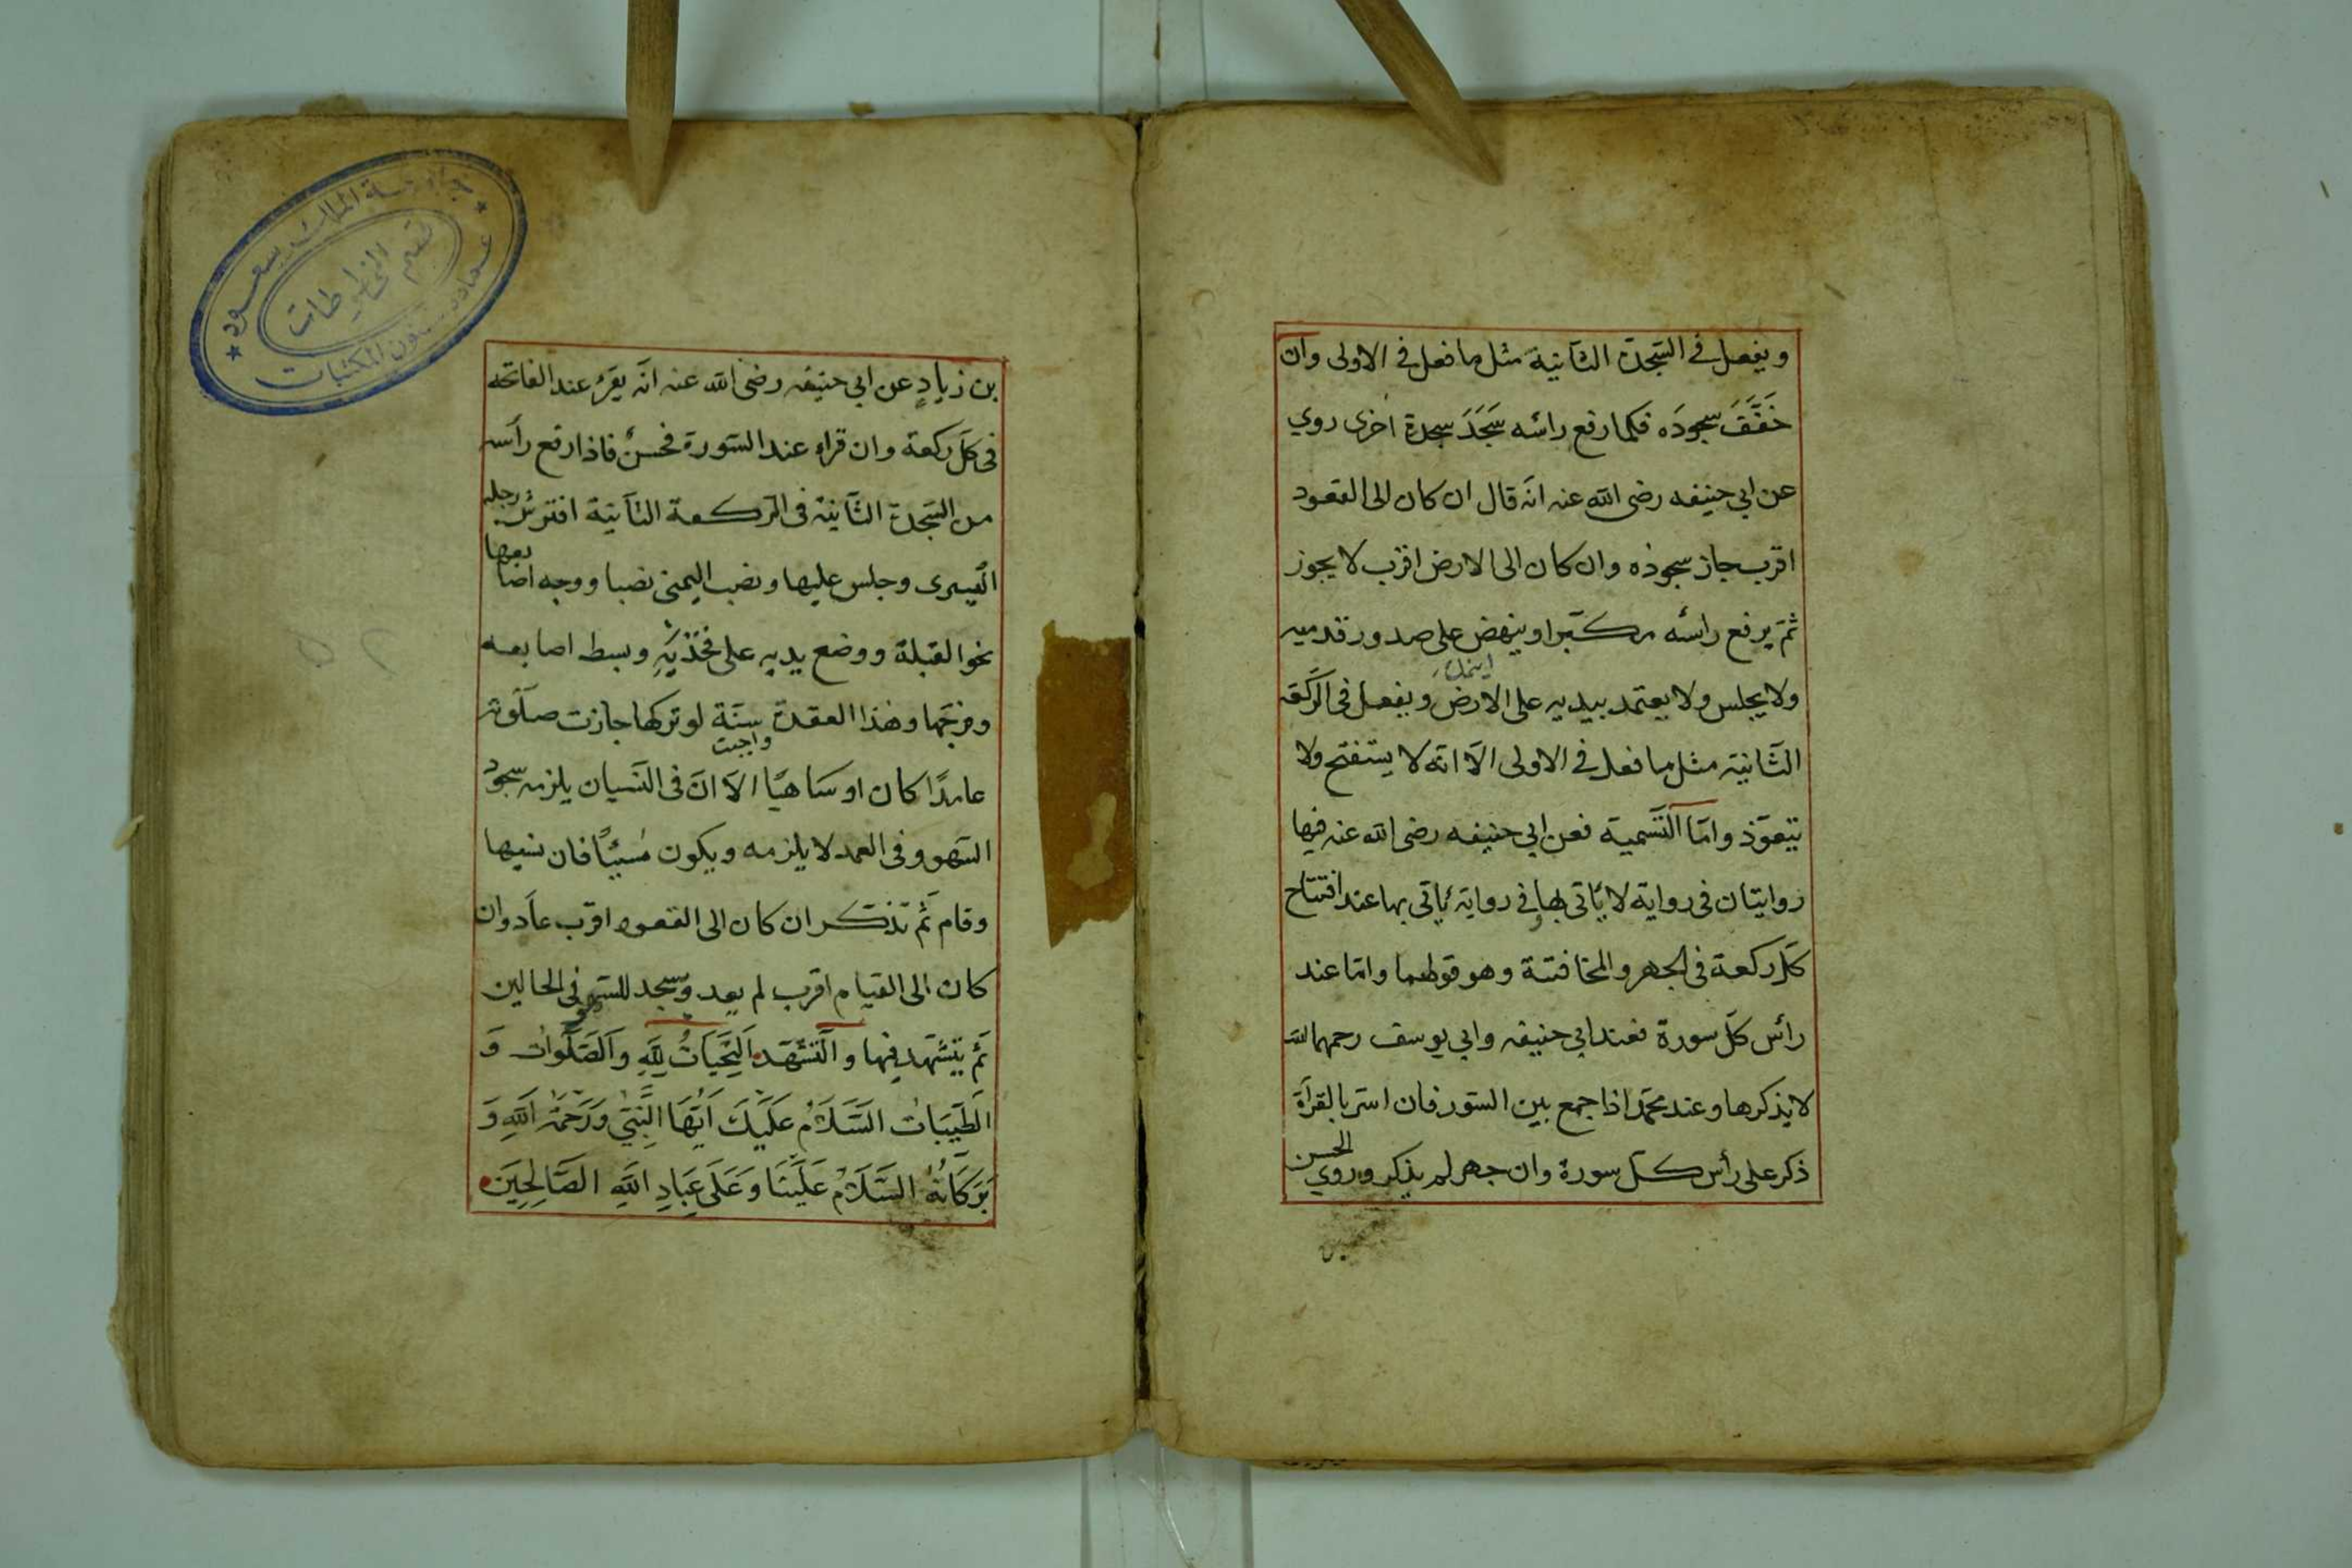 ويفعل في السّجدة الثّانية مثل ما فعل في الاولى وان
خَفَّفَ سجودَه فكما رفع رائسه سَجَدَ سجدة اخرى روي
عن ابي حنيفه رضى الله عنه انّه قال ان كان الى القعود
اقرب جاز سجوده وان كان الى الارض اقرب لا يجوز
ثمّ يرفع رائسه مكبّرا وينهض على صدور قدميه
ولا يجلس ولا يعتمد بيديه على الارض ويفعل فى الرّكعة
الثّانية مثل ما فعل في الاولى الّا انّه لا يستفتح ولا
يتعوّذ وامّا التّسمية فعن ابي حنيفه رضى الله عنه فيها
روايتان فى رواية لا يأتى بها وفي رواية يأتى بها عند افتتاح
كلّ ركعة فى الجهر والمخافتة وهو قولهما وامّا عند
رأس كلّ سورة فعند ابي حنيفه وابي يوسف رحمهما الله
لا يذكرها وعند محمّد اذا جمع بين السّور فان اسرّ بالقرأة
ذكر على رأس كلّ سورة وان جهر لم يذكر وروي الحسن
بن زيادٍ عن ابي حنيفه رضى الله عنه انّه يقرء عند الفاتحه
فى كلّ ركعة وان قراء عند السّورة فحسنٌ فاذا رفع رأسه
من السّجدة الثّانية فى الرّكعة الثّانية افترش رجله
اليسرى وجلس عليها ونصب اليمنى نصبا ووجه اصابعها
نحو القبلة ووضع يديه على فخذيْهِ وبسط اصابعه
وفرجها وهذا العقدة سنّة لو تركها جازت صلوته
واجبت
عامدًا كان او ساهيًا الّا انّ فى النّسيان يلزمه سجود
السّهو وفى العمد لا يلزمه ويكون مُسيئًا فان نسيها
وقام ثمّ تذكّر ان كان الى القعود اقرب عاد وان
كان الى القيام اقرب لم يعد وسجد للسّهو فى الحالين
ثمّ يتشهّد فيها والتّشهّد اَلتَّحَيَّاتُ لِلّٰهِ وَالصَّلَوَاتُ وَ
الطَّيِّبَاتُ السَّلَامُ عَلَيْكَ اَيُّهَا النَّبِيُّ وَرَحْمَةُ اللّٰهِ وَ
بَرَكَاتُهُ السَّلَامُ عَلَيْنَا وَعَلَى عِبَادِ اللّٰهِ الصَّالِحِينَ
بن
جامعة الملك سعود
قسم المخطوطات
عمادة شئون المكتبات